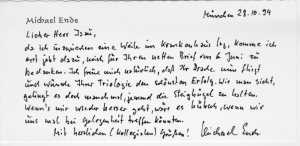 Michael Ende
München 28.10.94
Lieber Herr Isau,
da ich inzwischen eine Weile im Krankenhaus lag, komme ich
erst jetzt dazu, mich für Ihren netten Brief vom 6. Juni zu
bedanken. Ich freue mich natürlich, daß Ihr Drache nun fliegt
und wünsche Ihrer Triologie den schönsten Erfolg. Wie man sieht,
gelingt es doch manchmal, jemand die Steigbügel zu halten.
Wenn's mir wieder besser geht, wäre es hübsch, wenn wir
uns mal bei Gelegenheit treffen könnten.
Mit herzlichen (kollegialen) Grüßen!
Michael Ende